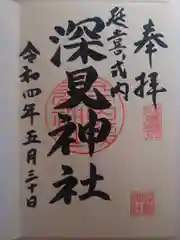 奉拝
延喜式内
深見神社
令和四年五月三十日